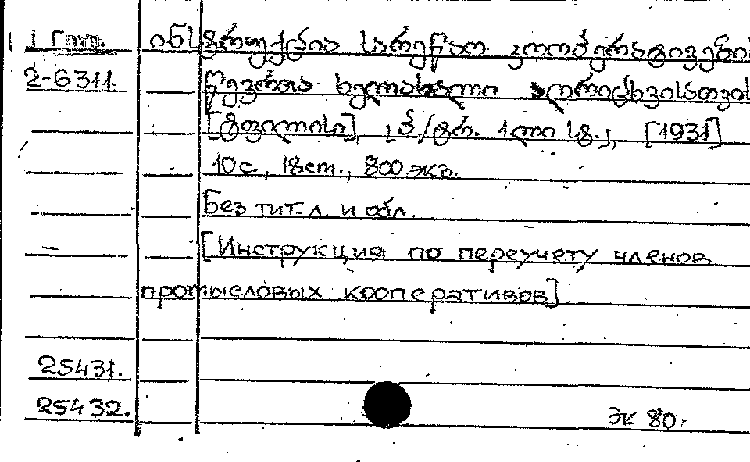 1 Гпт. ინსტრუქცია სარეწაო კოოპერატივების
2-6311. წევრთა ხელახალი აღრიცხვისათვის
[ტფილისი], [1931]
10 с., 18 cm., 800 экз.
Без тит. л. и обл.
[Инструкция по переучету членов
промысловых кооперативов]
25431.
25432. ЭК 80г